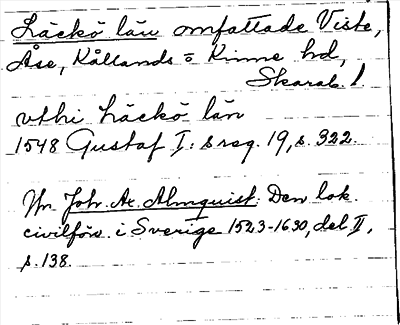 Läckö län omfattade Viste,
Åse, Kållands o Kinne hd,
Skarab. l
vthi Läckö län
1548 Gustaf I:s reg. 19, s. 322.
Jfr Joh. Ax. Almquist: Den lok.
civilförv. i Sverige 1523-1630, del II,
s. 138.